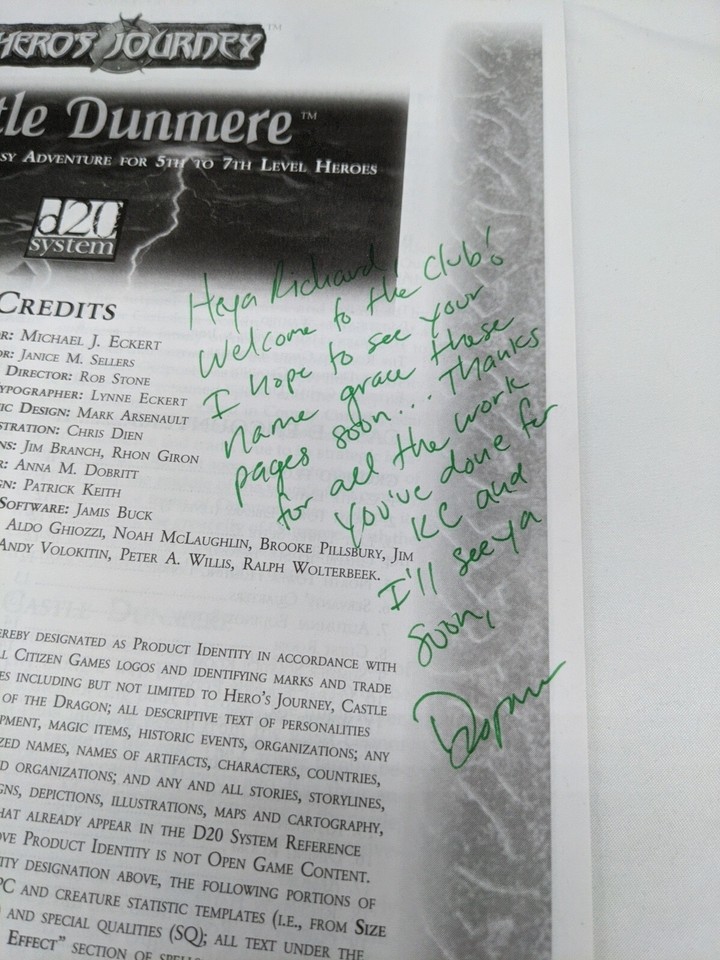 HERO'S JOURNEY™
tle Dunmere™
SY ADVENTURE FOR 5TH TO 7TH LEVEL HEROES
d20
system
Heya Richard!
Welcome to the Club!
I hope to see your
name grace these
pages soon... Thanks
for all the work
you've done for
KC and
I'll see ya
soon,
CREDITS
R: MICHAEL J. ECKERT
OR: JANICE M. SELLERS
DIRECTOR: ROB STONE
YPOGRAPHER: LYNNE ECKERT
IC DESIGN: MARK ARSENAULT
STRATION: CHRIS DIEN
NS: JIM BRANCH, RHON GIRON
R: ANNA M. DOBRITT
GN: PATRICK KEITH
SOFTWARE: JAMIS BUCK
ALDO GHIOZZI, NOAH MCLAUGHLIN, BROOKE PILLSBURY, JIM
ANDY VOLOKITIN, PETER A. WILLIS, RALPH WOLTERBEEK.
EREBY DESIGNATED AS PRODUCT IDENTITY IN ACCORDANCE WITH
L CITIZEN GAMES LOGOS AND IDENTIFYING MARKS AND TRADE
ES INCLUDING BUT NOT LIMITED TO HERO'S JOURNEY, CASTLE
OF THE DRAGON; ALL DESCRIPTIVE TEXT OF PERSONALITIES
PMENT, MAGIC ITEMS, HISTORIC EVENTS, ORGANIZATIONS; ANY
ZED NAMES, NAMES OF ARTIFACTS, CHARACTERS, COUNTRIES,
D ORGANIZATIONS; AND ANY AND ALL STORIES, STORYLINES,
GNS, DEPICTIONS, ILLUSTRATIONS, MAPS AND CARTOGRAPHY,
HAT ALREADY APPEAR IN THE D20 SYSTEM REFERENCE
OVE PRODUCT IDENTITY IS NOT OPEN GAME CONTENT.
ITY DESIGNATION ABOVE, THE FOLLOWING PORTIONS OF
PC AND CREATURE STATISTIC TEMPLATES (I.E., FROM SIZE
) AND SPECIAL QUALITIES (SQ); ALL TEXT UNDER THE
EFFECT" SECTION OF